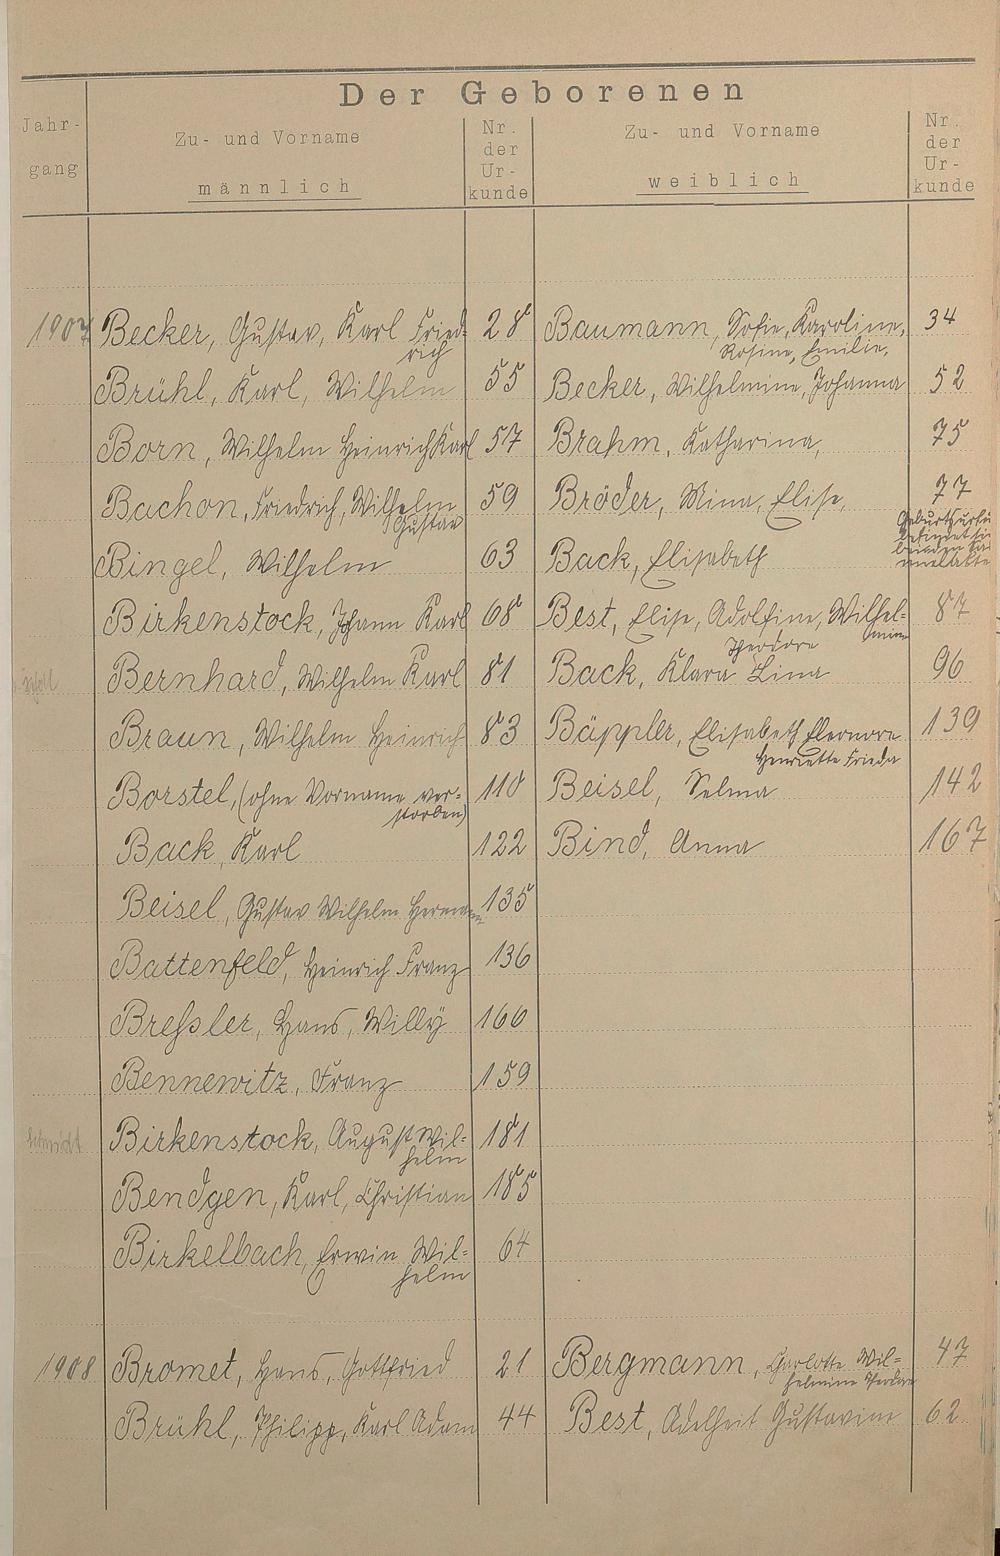 Der Geborenen
Jahr-
gang
Zu- und Vorname
männlich
Nr.
der
Ur-
kunde
Zu- und Vorname
weiblich
Nr.
der
Ur-
kunde
1907 Becker, Gustav, Karl Fried- 28 Baumann, Sofie, Karoline, 34
rich Rosine, Emilie,
Brühl, Karl, Wilhelm 55 Becker, Wilhelmine, Johanna 52
Born, Wilhelm Heinrich Karl 57 Brahm, Katharina, 75
Bachon, Friedrich, Wilhelm 59 Bröder, Mina, Elise, 77
Gustav Geburtsurku
befindet si
bei den
Bingel, Wilhelm 63 Back, Elisabeth
Birkenstock, Johann Karl 68 Best, Elise, Adolfine, Wilhel- 87
mine
Theodore
Bernhard, Wilhelm Karl 81 Back, Klara Lina 96
Braun, Wilhelm Heinrich 83 Bäppler, Elisabeth Eleonore 139
Henriette Frieda
Borstel, (ohne Vorname ver- 110 Beisel, Selma 142
storben)
Back, Karl 122 Bind, Anna 167
Beisel, Gustav Wilhelm Hermann 135
Battenfeld, Heinrich Franz 136
Breßler, Hans, Willy 160
Bennewitz, Franz 159
Birkenstock, August Wil- 181
helm
Bendgen, Karl, Christian 185
Birkelbach, Erwin Wil- 64
helm
1908 Bromet, Hans, Gottfried 21 Bergmann, Charlotte Wil- 47
helmine Theodore
Brühl, Philipp, Karl Adam 44 Best, Adelheit Gustavine 62